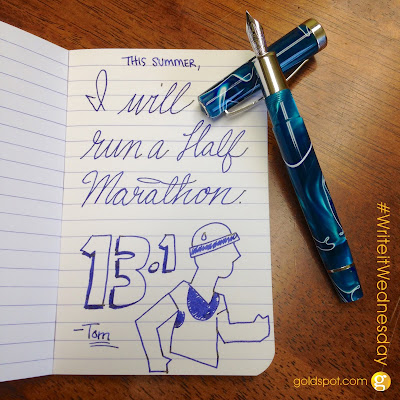 THIS SUMMER,
I will
run a Half
Marathon.
13.1
-Tom
#WriteitWednesday
goldspot.com g